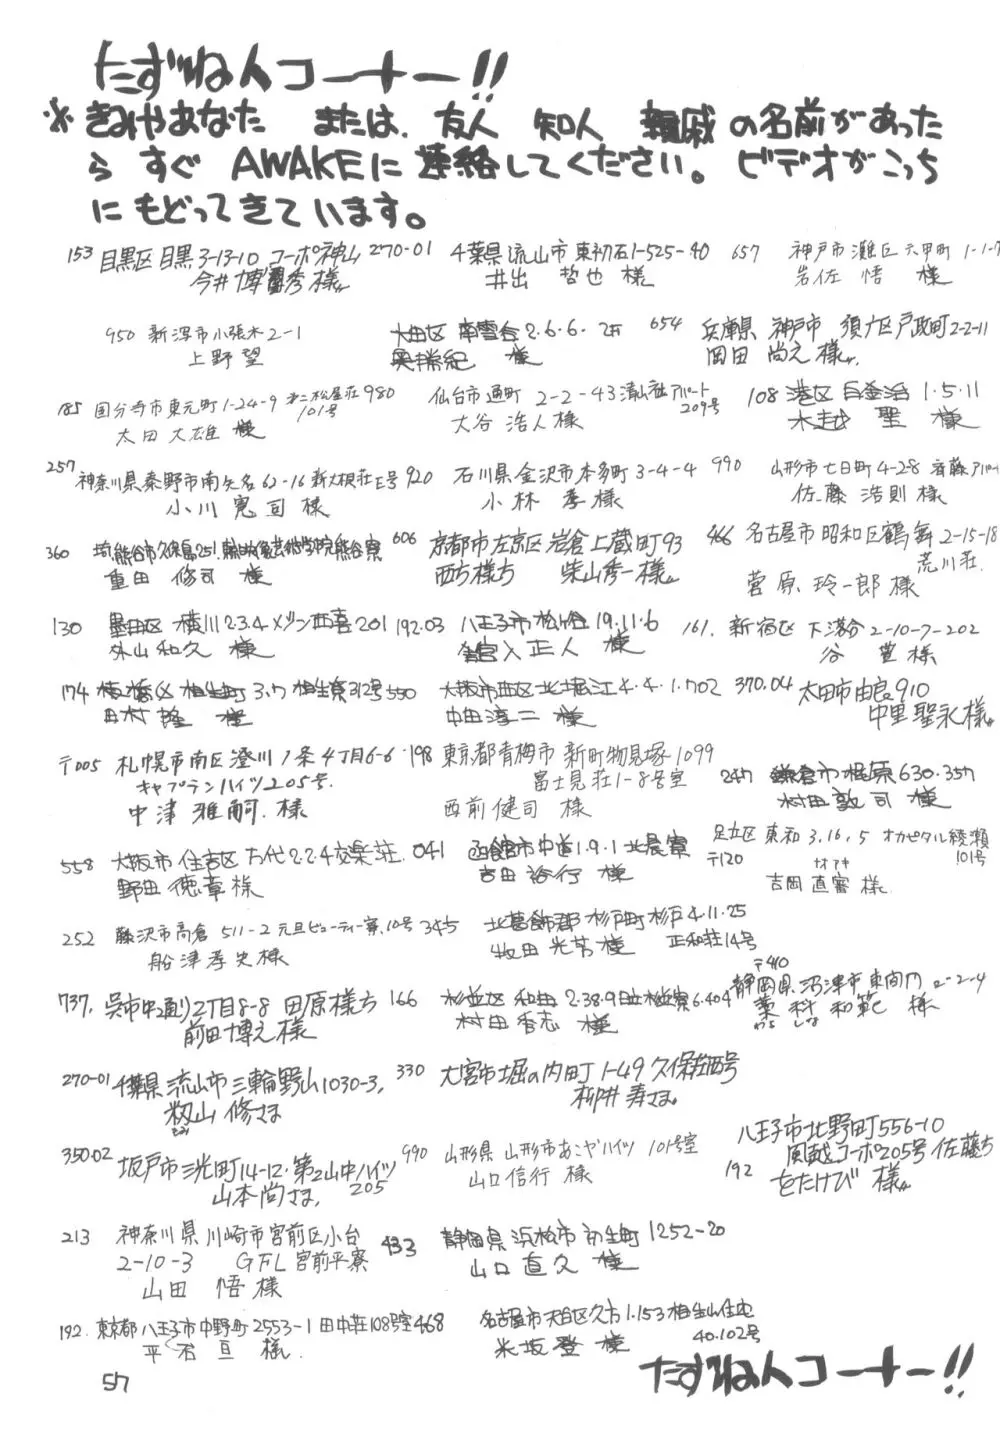 たずね人コーナー!!
※きみやあなた または、友人 知人 親戚の名前があった
ら すぐ AWAKEに連絡してください。ビデオがこっち
にもどってきています。
153 目黒区目黒3-13-10 コーポ神山
今井博秀様
270-01 千葉県流山市東初石1-525-40
井出哲也様
657 神戸市灘区六甲町1-1-7
岩佐悟様
950 新潟市小張木2-1
上野望
大田区南雪谷2.6.6.
奥勝紀様
654 兵庫県神戸市須磨区戸政町2-2-11
岡田尚之様
185 国分寺市東元町1-24-9 第二松屋荘
101号
太田大雄様
980 仙台市通町2-2-43 清山荘アパート
209号
大谷浩人様
108 港区白金台1.5.11
木越聖様
257 神奈川県秦野市南矢名62-16 新大根荘E号
小川寛司様
920 石川県金沢市本多町3-4-4
小林孝様
990 山形市七日町4-28 斉藤アパート
佐藤浩則様
360 埼.熊谷市久保島251. 熊谷寮
重田修司様
606 京都市左京区岩倉上蔵町93
西方様方 柴山秀一様
466 名古屋市昭和区鶴舞2-15-18
荒川荘
菅原玲一郎様
130 墨田区横川2.3.4メゾン西喜201
外山和久様
192.03 八王子市松が谷19.11.6
正人様
161. 新宿区下落合2-10-7-202
谷豊様
174 板橋区相生町3.7相生寮312号
田村隆様
550 大阪市西区北堀江4.4.1.702
中田淳二様
370.04 太田市由良910
中里聖永様
〒005 札幌市南区澄川1条4丁目6-6
キャプテンハイツ205号
中津雅嗣様
198 東京都青梅市新町物見塚1099
富士見荘1-8号室
西前健司様
247 鎌倉市梶原630.357
村田敦司様
558 大阪市住吉区万代2.2.4交楽荘.
野田徳章様
041 函館市中道1.9.1北晨寮
吉田裕行様
〒120 足立区東和3,16,5 オカピタル綾瀬
101号
ナオアキ
吉岡直審様
252 藤沢市高倉511-2元旦ビューティー寮10号
船津孝史様
345 北葛飾郡杉戸町杉戸4.11.25
正和荘14号
牧田光芳様
〒410
静岡県沼津市東間門2-2-4
藁科和範様
わら しな
737. 呉市中通り2丁目8-8 田原様方
前田博之様
166 杉並区和田2.38.9日立杉並寮6.404
村田香志様
270-01 千葉県流山市三輪野山1030-3,
籾山修さま
330 大宮市堀の内町1-49久保荘西号
柳井寿さま
350.02 坂戸市三光町14-12.第2山中ハイツ
205
山本尚さま
990 山形県山形市あこやハイツ101号室
山口信行様
192 八王子市北野町556-10
風越コーポ205号佐藤方
をたけび様
213 神奈川県川崎市宮前区小台
2-10-3 GFL宮前平寮
山田悟様
433 静岡県浜松市初生町1252-20
山口直久様
192. 東京都八王子市中野町2553-1田中荘108号室
平岩亘様
468 名古屋市天白区久方1.153相生山住宅
40.102号
米坂登様
57
たずね人コーナー!!